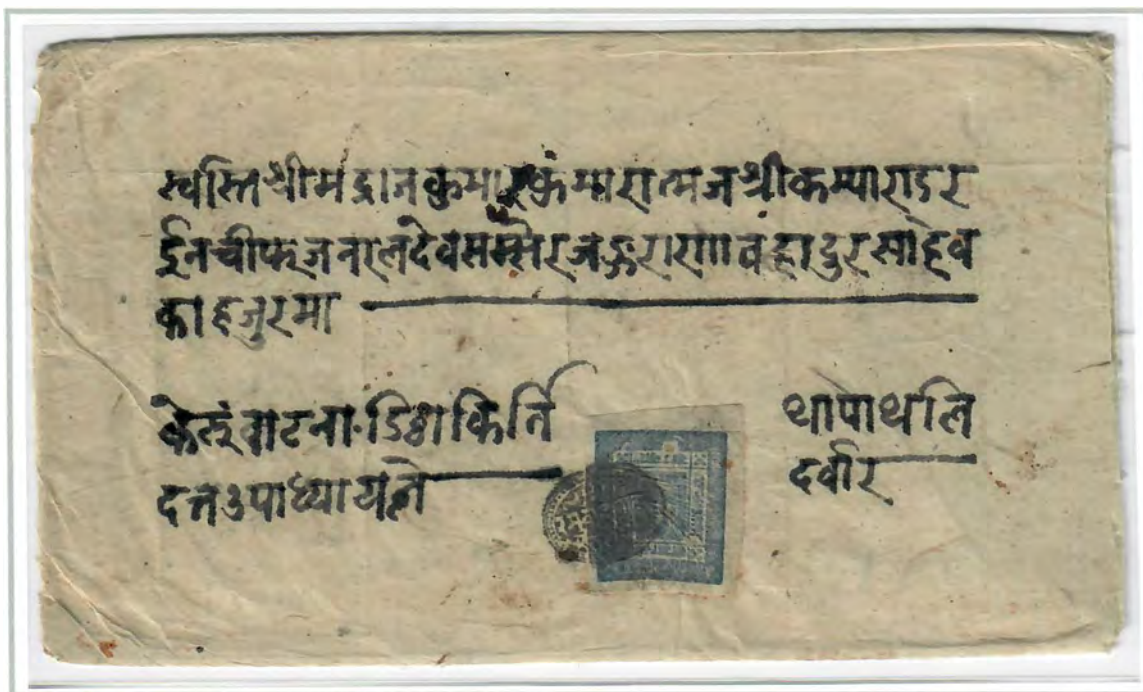 स्वस्ति श्रीमद्राजकुमारकुमारात्मज श्रीकम्याराडर
ईनचीफ् जनरल देवसमसेरजङ्गराणा वहादुर साहेव
का हजुरमा
वाटना. डिठ्ठा किर्ति
दत्त उपाध्याय्ले
थापाथलि
दर्वार